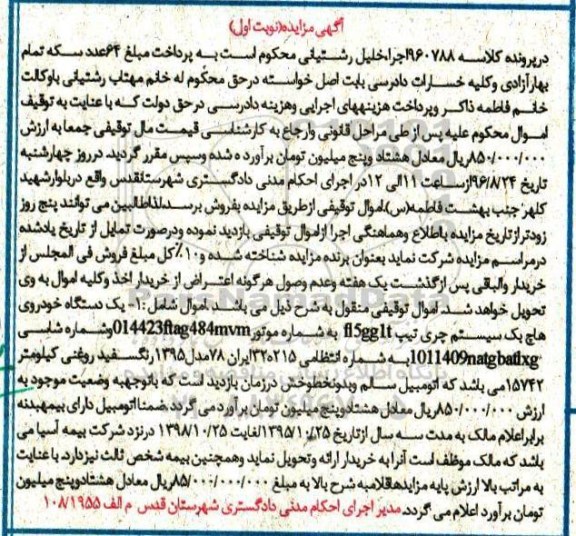 آگهی مزایده(نوبت اول)
درپرونده کلاسه ۹۶۰۷۸۸اجرا،خلیل رشتیانی محکوم است به پرداخت مبلغ ۶۴عدد سکه تمام
بهارآزادی وکلیه خسارات دادرسی بابت اصل خواسته درحق محکوم له خانم مهتاب رشتیانی باوکالت
خانم فاطمه ذاکر وپرداخت هزینههای اجرایی وهزینه دادرسی درحق دولت که با عنایت به توقیف
اموال محکوم علیه پس از طی مراحل قانونی وارجاع به کارشناسی قیمت مال توقیفی جمعا به ارزش
۸۵۰/۰۰۰/۰۰۰ریال معادل هشتاد وپنج میلیون تومان برآورد ه شده وسپس مقرر گردید. درروز چهارشنبه
تاریخ ۹۶/۸/۲۴ازساعت ۱۱الی ۱۲در اجرای احکام مدنی دادگستری شهرستانقدس واقع دربلوارشهید
کلهر جنب بهشت فاطمه(س)،اموال توقیفی ازطریق مزایده بفروش برسد،لذاطالبین می توانند پنج روز
زودتراز تاریخ مزایده بااطلاع وهماهنگی اجرا ازاموال توقیفی بازدید نموده ودرصورت تمایل از تاریخ یادشده
درمراسم مزایده شرکت نماید بعنوان برنده مزایده شناخته شده و۱۰٪کل مبلغ فروش فی المجلس از
خریدار والباقی پس ازگذشت یک هفته وعدم وصول هرگونه اعتراض از خریدار اخذ وکلیه اموال به وی
تحویل خواهد شد. اموال توقیفی منقول به شرح ذیل می باشد. اموال شامل :۱- یک دستگاه خودروی
هاچ بک سیستم چری تیپ fl5gglt به شماره موتور014423ftag484mvm وشماره شاسی
1011409natgbatlxg به شماره انتظامی ۲۱۵ج۳۲ایران ۷۸مدل۱۳۹۵رنگسفید روغنی کیلومتر
۱۵۷۴۲می باشد که اتومبیل سالم وبدونخطوخش درزمان بازدید است که باتوجهبه وضعیت موجود به
ارزش ۸۵۰/۰۰۰/۰۰۰ریال معادل هشتادوپنج میلیون تومان برآورد می گردد.ضمنااتومبیل دارای بیمهبدنه
برابراعلام مالک به مدت سه سال ازتاریخ ۱۳۹۵/۱۰/۲۵لغایت ۱۳۹۸/۱۰/۲۵ درنزد شرکت بیمه آسیا می
باشد که مالک موظف است آنرا به خریدار ارائه وتحویل نماید وهمچنین بیمه شخص ثالث نیزدارد. با عنایت
به مراتب بالا ارزش پایه مزایدهاقلامبه شرح بالا به مبلغ ۸۵۰/۰۰۰/۰۰۰ریال معادل هشتادوپنج میلیون
تومان برآورد اعلام می گردد. مدیر اجرای احکام مدنی دادگستری شهرستان قدس م الف ۱۰۸/۱۹۵۵